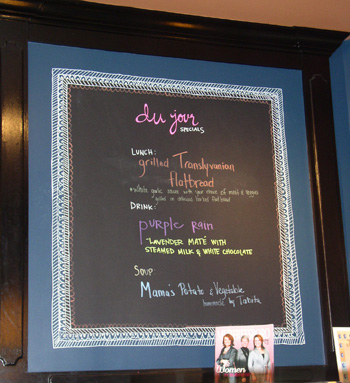 du jour
SPECIALS
LUNCH:
grilled Translyvanian
flatbread
white garlic sauce with your choice of meat & veggies
grilled on delicious herbed flatbread
DRINK:
purple rain
"LAVENDER MATÉ WITH
STEAMED MILK & WHITE CHOCOLATE
SOUP:
Mama's Potato & Vegetable
homemade by Takita
Women